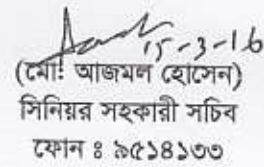 15-3-16
(মোঃ আজমল হোসেন)
সিনিয়র সহকারী সচিব
ফোন ঃ ৯৫১৪১৩৩